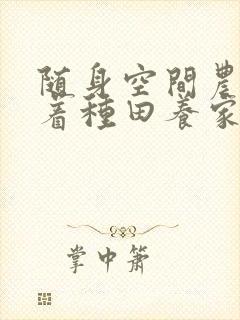 随身空間農
着種田養家
掌中箫